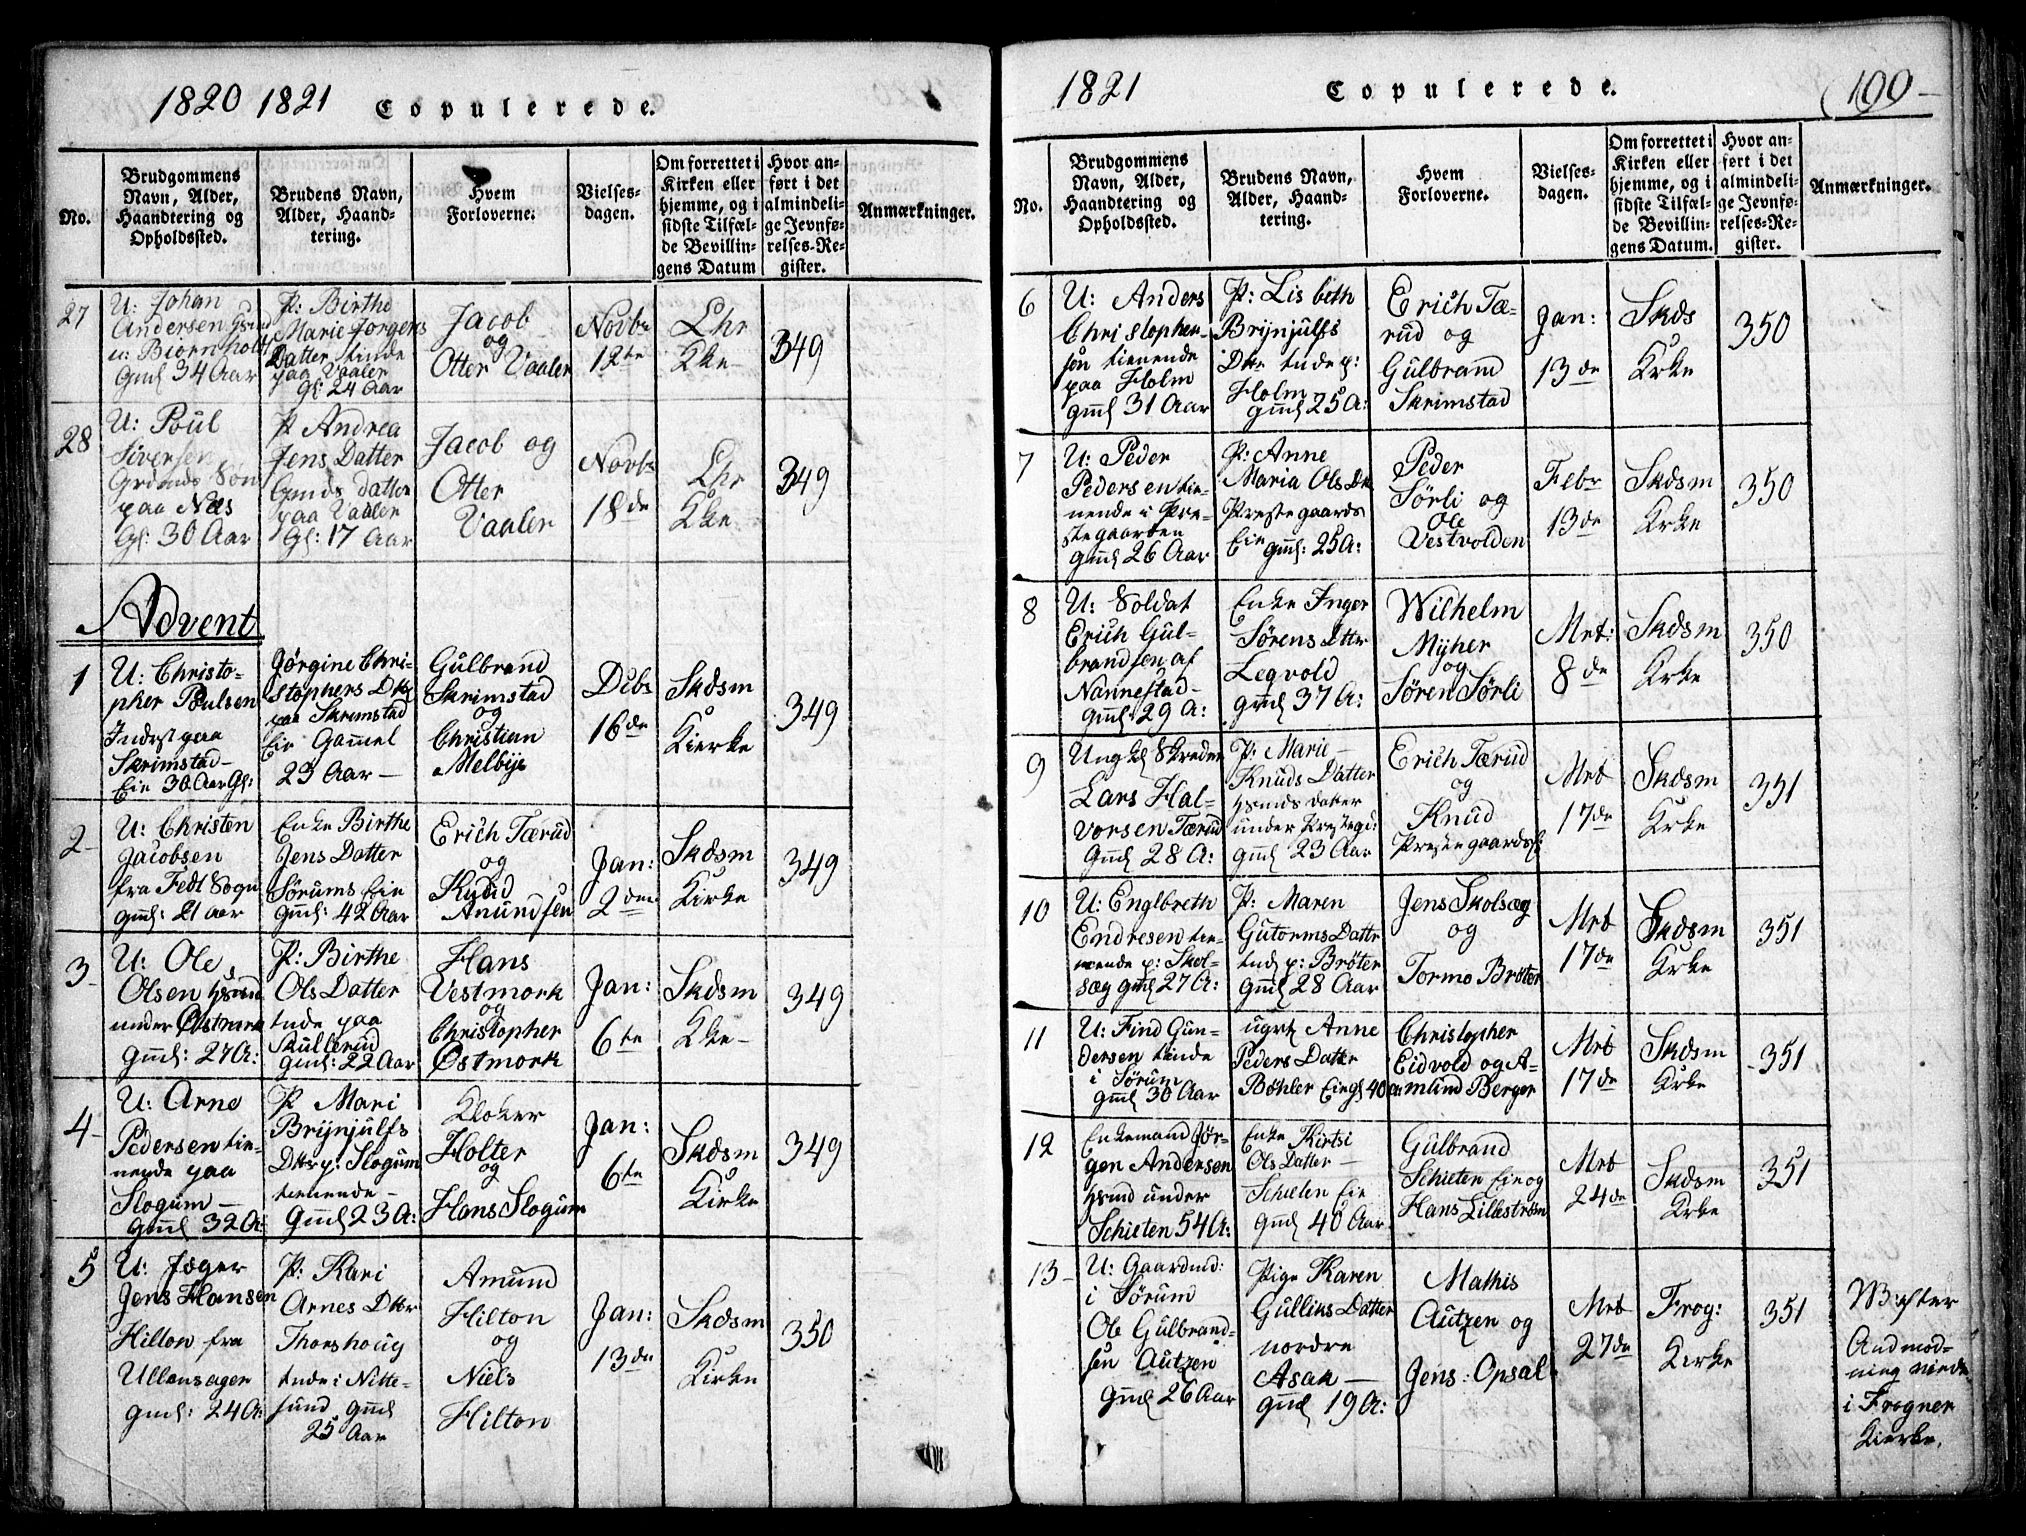 1820 1821 Copulerede.
No.
Brudgommens
Navn, Alder,
Haandtering og
Opholdssted.
Brudens Navn,
Alder, Haand-
tering.
Hvem
Forloverne.
Vielses-
dagen.
Om forrettet i
Kirken eller
hjemme, og i
sidste Tilfæl-
de Bevillin-
gens Datum
Hvor an-
ført i det
almindeli-
ge Jevnfø-
relses-Re-
gister.
Anmærkninger.
27
U: Johan
Andersen
u: Biørnholt
Gml 34 Aar
P: Birthe
Marie Jørgens
Datter tinde
paa Vaaler
Gl: 24 Aar
Jacob
og
Otter Vaaler
Novbr
12te
Lhr
Kke
349
28
U: Poul
Siversen
Grdmds Søn
paa Næs
Gl: 30 Aar
P: Andrea
Jens Datter
Gmds datter
paa Vaaler
Gl: 17 Aar
Jacob og
Otter
Vaaler
Novbr
18de
Lhr
Kke
349
Advent
1
U: Christo-
pher Poulsen
Inderst paa
Skrimstad
Eie 30 Aar Gl:
Jørgine Chri-
stophers Dtr
paa Skrimstad
Eie Gammel
23 Aar
Gulbrand
Skrimstad
og
Christian
Melbye
Debr
16de
Skdsm
Kierke
349
2
U: Christen
Jacobsen
fra Fedt Sogn
gmdl: 21 aar
Enke Birthe
Jens Datter
Sørums Eie
Gmdl: 42 Aar
Erich Tærud
og
Knud
Amundsen
Jan:
2den
Skdsm
Kirke
349
3
U: Ole
Olsen
under Østmork
Gmdl: 27 A:
P: Birthe
Ols Datter
tnde paa
Skullerud
Gmdl: 22 Aar
Hans
Vestmork
og
Christopher
Østmork
Jan:
6te
Skdsm
Kke
349
4
U: Arne
Pedersen tie-
nende paa
Slogum
gmdl 32 A:
P: Mari
Brynjulfs
Dttr p: Slogum
tienende
Gmdl 23 A:
Kloker
Holter
og
Hans Slogum
Jan:
6te
Skdsm
Kirke
349
5
U: Jæger
Jens Hansen
Hilton fra
Ullensager
Gmdl: 24 A:
P: Kari
Arnes Dttr
Thorshoug
tnde i Nitte-
sund gmdl
25 Aar
Amund
Hilton
og
Niels
Hilton
Jan:
13de
Skdsm
Kirke
350
1821 Copulerede. 199
No.
Brudgommens
Navn, Alder,
Haandtering og
Opholdssted.
Brudens Navn,
Alder, Haand-
tering.
Hvem
Forloverne.
Vielses-
dagen.
Om forrettet i
Kirken eller
hjemme, og i
sidste Tilfæl-
de Bevillin-
gens Datum.
Hvor an-
ført i det
almindeli-
ge Jevnfø-
relses-Re-
gister.
Anmærkninger.
6
U: Anders
Christopher-
søn tienende
paa Holm
gmdl 31 Aar
P: Lisbeth
Brynjulfs
Dtr tnde p:
Holm
gmdl 25 A:
Erich Tæ-
rud og
Gulbrand
Skrimstad
Jan:
13de
Skds
Kirke
350
7
U: Peder
Pedersen tie-
nende i Pre-
stegaarden
gmdl 26 Aar
P: Anne
Maria Ols Dtr
Prestegaards
Eie gmdl: 25 A:
Peder
Sørli og
Ole
Vestvolden
Febr
13de
Skdsm
Krke
350
8
U: Soldat
Erich Gul-
brandsen af
Nannestad
gmdl 29 A:
Enke Inger
Sørens Dttr
Leqvold
gmdl 37 A:
Wilhelm
Myher
og
Søren Sørli
Mrt:
8de
Skdsm
Krke
350
9
Ung Skreder
Lars Hal-
vorsen Tærud
Gmdl 28 A:
P: Marie
Knuds Datter
datter
under Prestegd:
gmdl 23 Aar
Erich Tærud
og
Knud
Prestegaards
Mrt
17de
Skdsm
Krke
351
10
U: Englbreth
Endresen tie-
nende p: Skol-
sæg gmdl 27 A:
P: Maren
Gutorms Datter
tnd p: Brøter
gmdl 28 Aar
Jens Skolsæg
og
Tormo Brøter
Mrt
17de
Skdsm
Krke
351
11
U: Find Gun-
dersen tinde
i Sørum
gmdl 30 Aar
ugvt Anne
Peders Datter
Bøhler Eie gl 40 a:
Christopher
Eidvold og A-
mund Berger
Mrt
17de
Skdsm
Krke
351
12
Enkemand Jør-
gen Andersen
under
Schieten 54 A:
Enke Kirtsi
Ols Datter
Schieten Eie
gmdl 40 Aar
Gulbrand
Schieten Eie og
Hans Lillestrøm
Mrt
24de
Skdsm
Krke
351
13
U: Gaardmd:
i Sørum
Ole Gulbrand-
sen Autzen
Gmdl 26 Aar
Pige Karen
Gulliks Datter
nordre
Asak
gmdl 19 A:
Mathis
Autzen og
Jens: Opsal
Mrt
27de
Frog:
Kirke
351
efter
Anmod-
ning viede
i Frogner
Kierke.